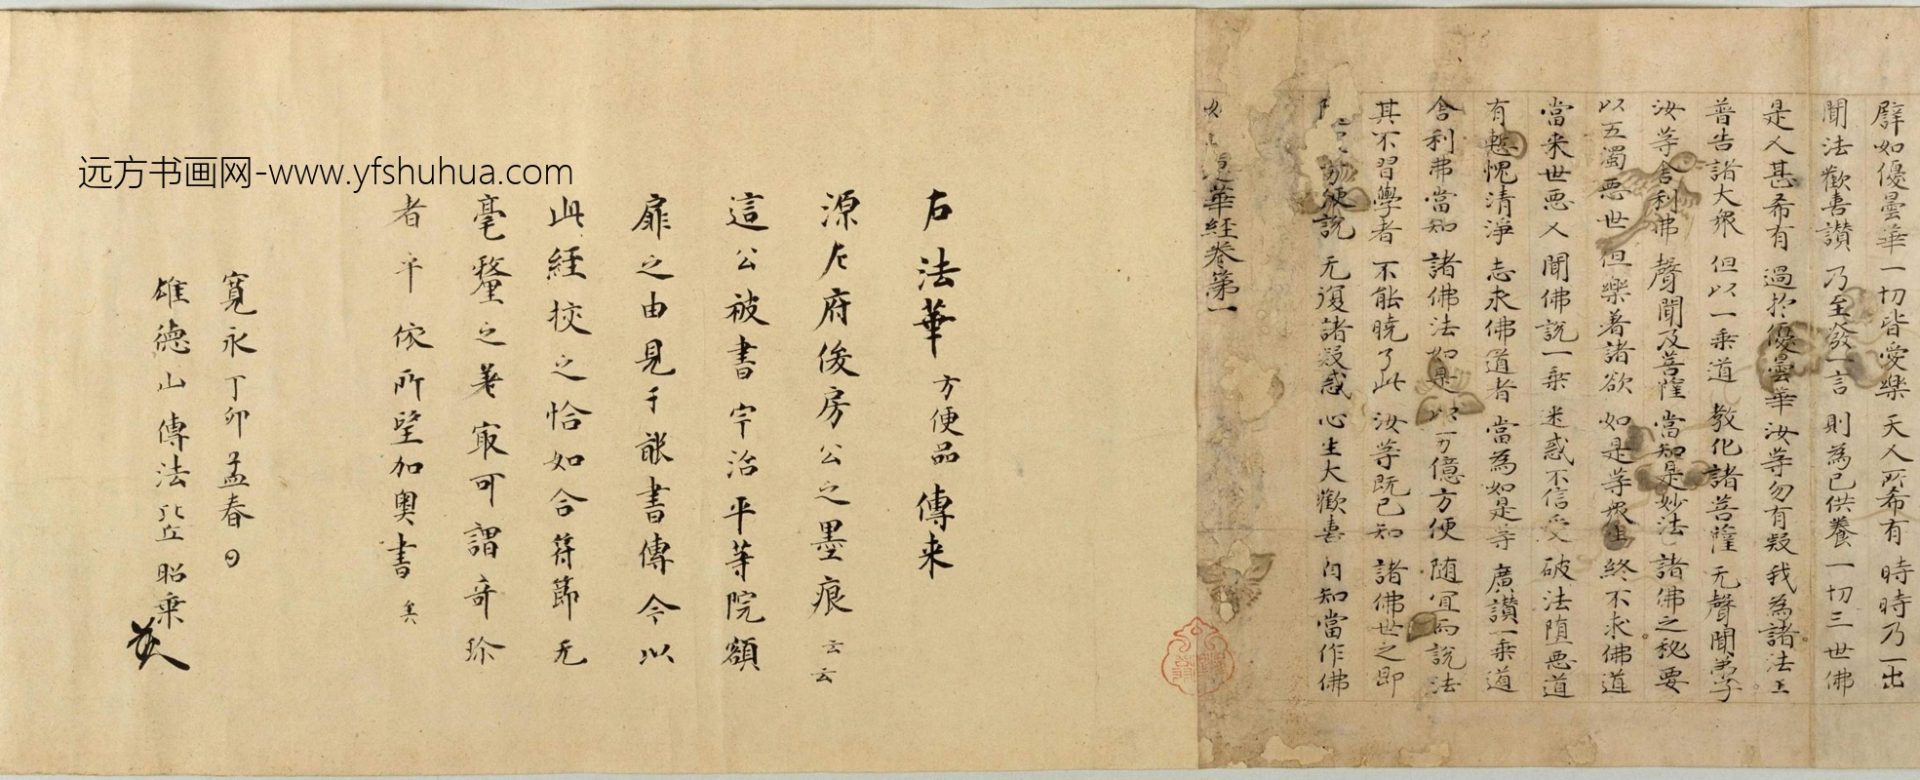 譬如優曇華 一切皆愛樂 天人所希有 時時乃一出
聞法歡喜讚 乃至發一言 則為已供養 一切三世佛
是人甚希有 過於優曇華 汝等勿有疑 我為諸法王
普告諸大眾 但以一乘道 教化諸菩薩 无聲聞弟子
汝等舍利弗 聲聞及菩薩 當知是妙法 諸佛之秘要
以五濁惡世 但樂著諸欲 如是等眾生 終不求佛道
當来世惡人 聞佛說一乘 迷惑不信受 破法堕惡道
有慙愧清淨 志求佛道者 當為如是等 廣讚一乘道
舍利弗當知 諸佛法如是 以万億方便 随宜而說法
其不習學者 不能曉了此 汝等既已知 諸佛世之師
方便說 无復諸疑惑 心生大歡喜 自知當作佛
華経卷第一
右法華方便品傳来
源左府俊房公之墨痕云云
這公被書宇治平等院額
扉之由見于訛書傳今以
此經挍之恰如合符節无
毫釐之差寂可謂奇珎
者乎依所望加奧書矣
寬永丁卯孟春日
雄德山傳法比丘昭乗
远方书画网-www.yfshuhua.com